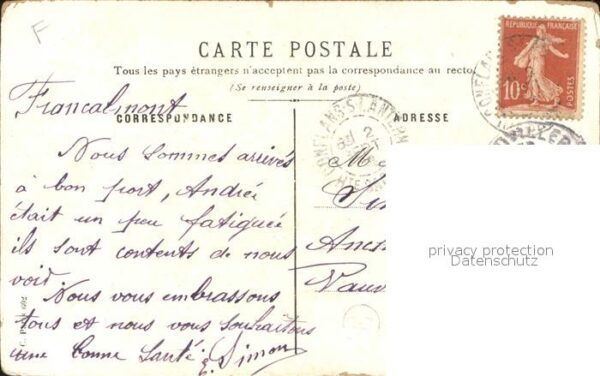 F
CARTE POSTALE
Tous les pays étrangers n'acceptent pas la correspondance au recto
(Se renseigner à la poste)
Francalmont
CORRESPONDANCE
ADRESSE
Nous sommes arrivés
à bon port, Andrée
était un peu fatiguée
ils sont contents de nous
voir
Nous vous embrassons
tous et nous vous souhaitons
une bonne santé. Simon
10c
POSTES
CONFLANS S LANTERN
privacy protection
Datenschutz